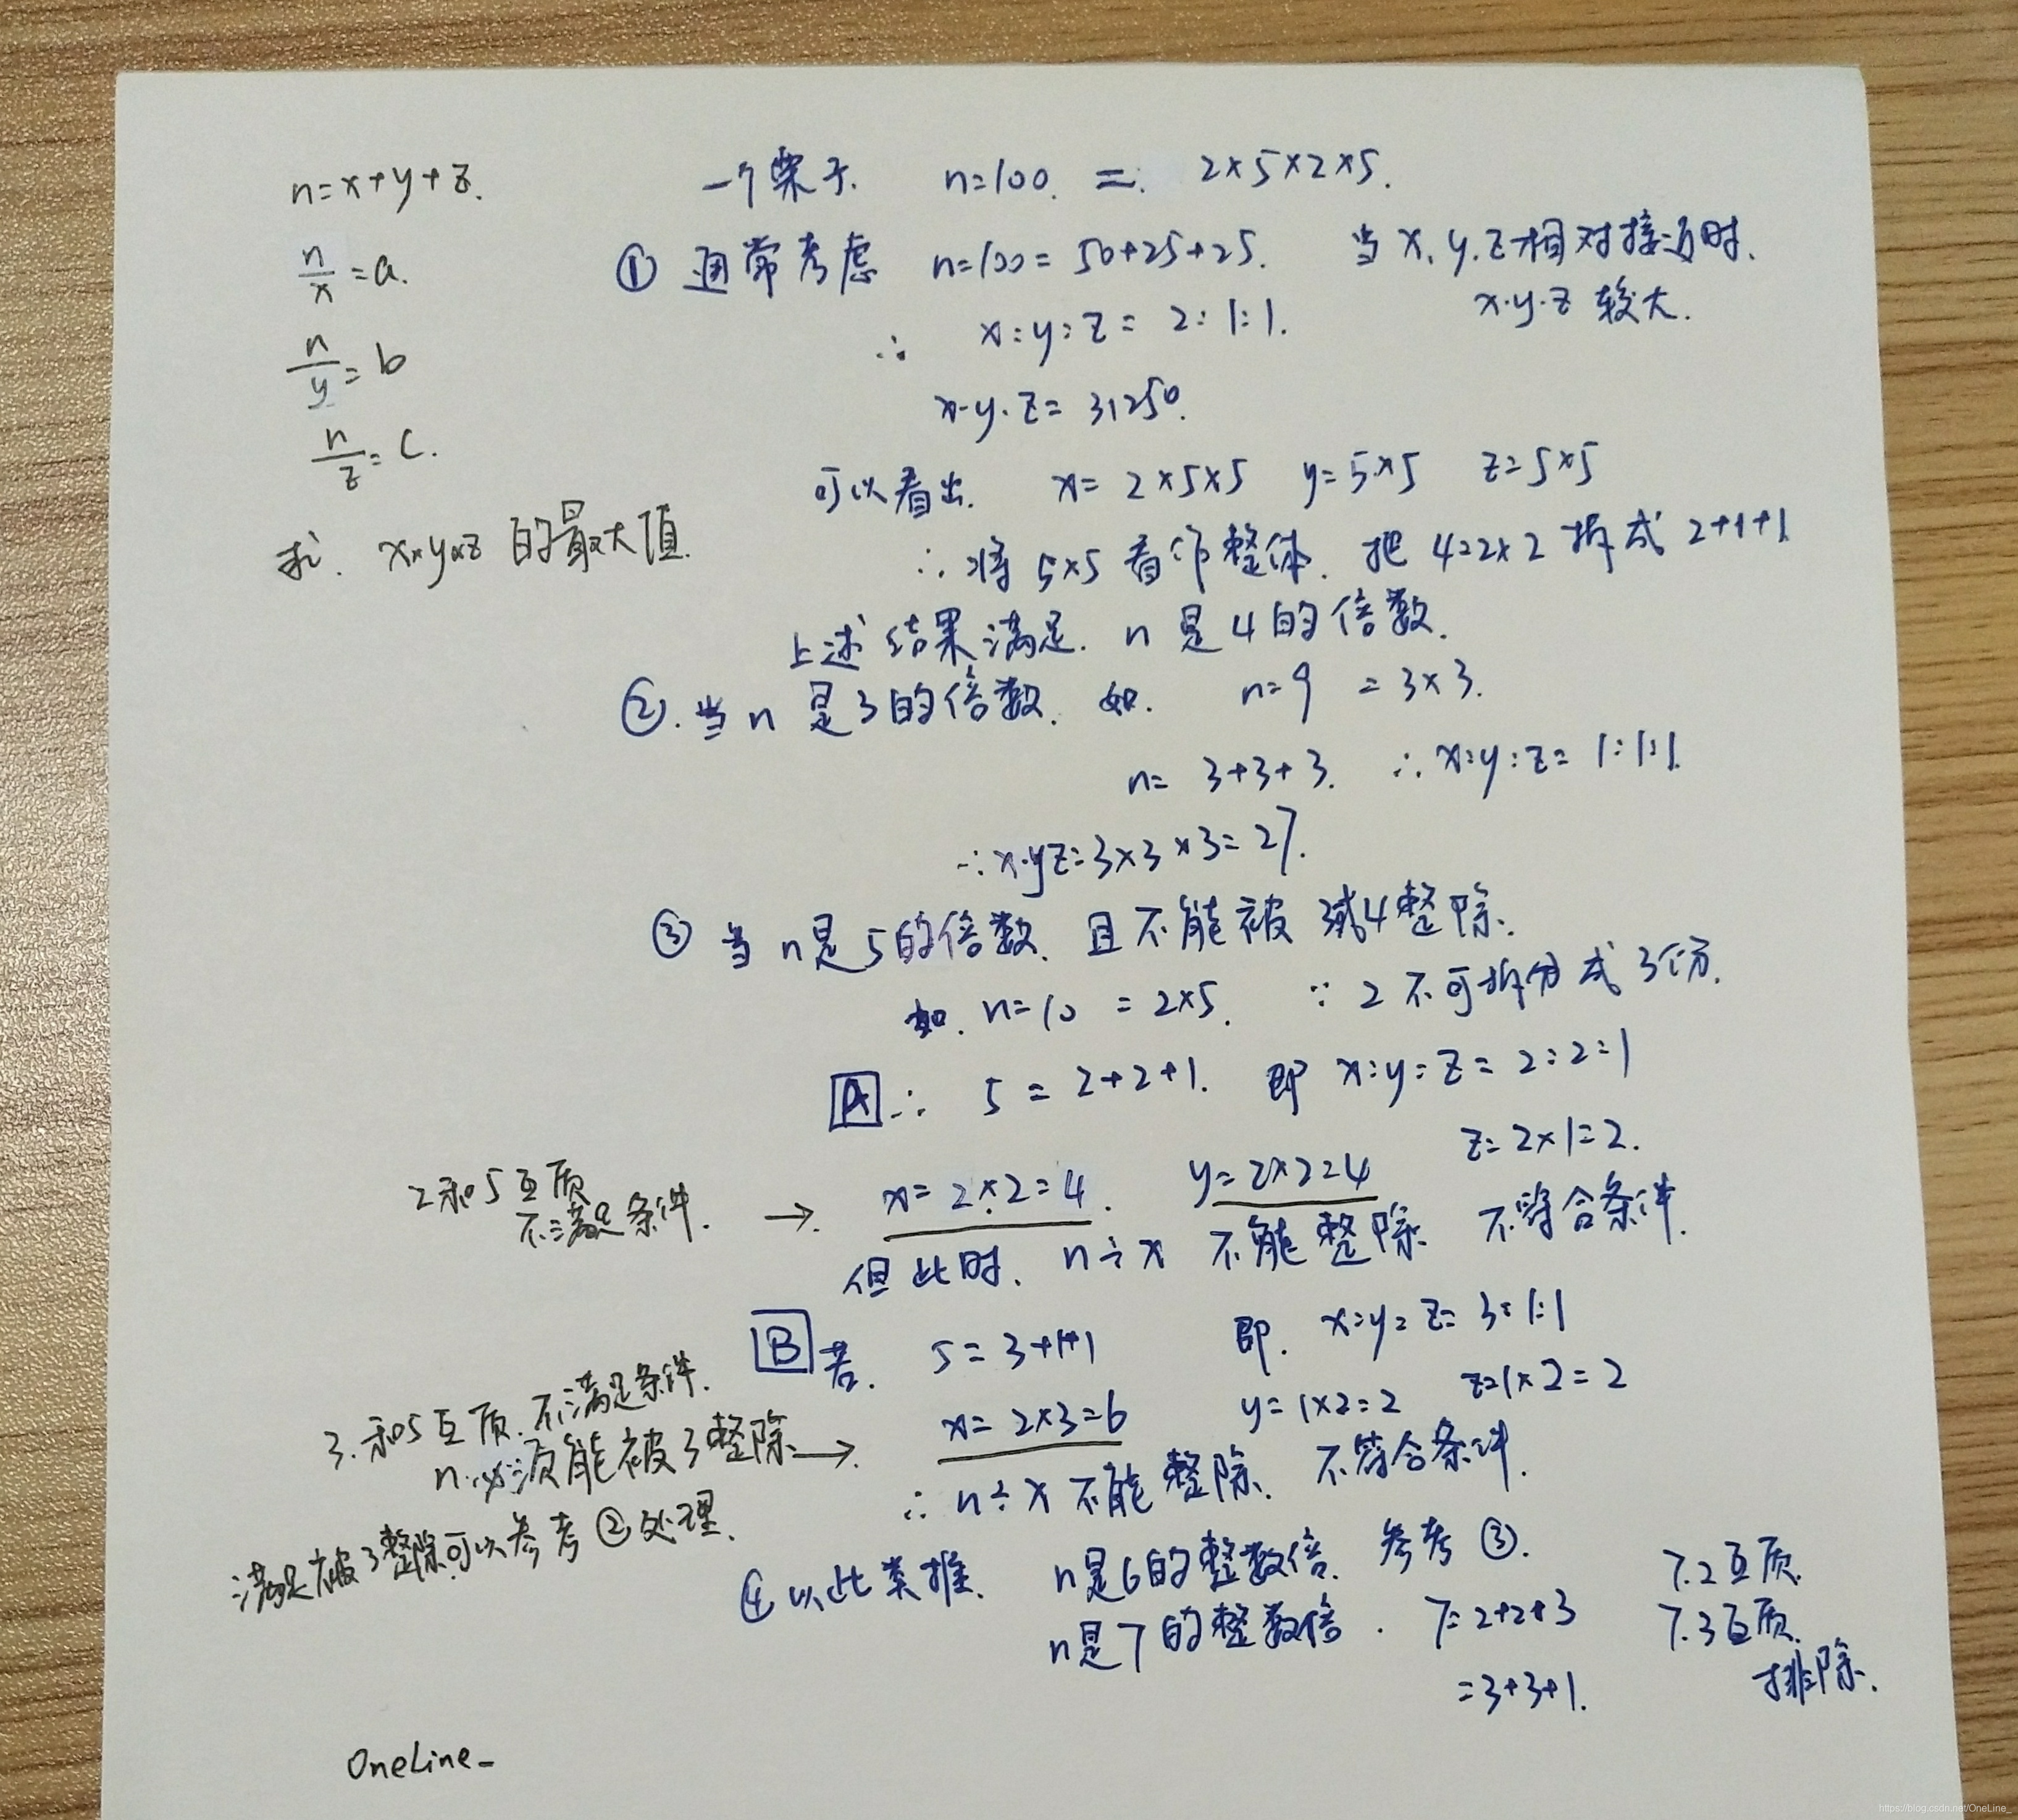 n=x+y+z.
n/x=a.
n/y=b
n/z=c.
求. x×y×z 的最大值.
一个栗子. n=100. =. 2×5×2×5.
① 通常考虑 n=100=50+25+25. 当 x.y.z相对接近时.
x·y·z 较大.
∴ x:y:z= 2:1:1.
x·y·z= 31250.
可以看出. x= 2×5×5 y=5×5 z=5×5
∴将 5×5 看作整体. 把 4=2×2 拆成 2+1+1
上述结果满足. n 是 4 的倍数.
②.当 n 是3的倍数. 如. n=9 =3×3.
n= 3+3+3. ∴x:y:z= 1:1:1.
∴x·yz=3×3×3=27.
③ 当 n是5的倍数. 且不能被 3或4整除.
如. n=10 =2×5. ∵ 2 不可拆分成 3份.
A ∴ 5 = 2+2+1. 即 x:y:z= 2:2:1
x= 2×2=4. y=2×2=4 z=2×1=2.
2和5互质
不满足条件. →.
但此时. n÷x 不能整除. 不符合条件.
B 若. 5=3+1+1 即. x:y:z= 3:1:1
x= 2×3=6 y=1×2=2 z=1×2=2
3.和5互质.不满足条件.
n.必须能被3整除 →.
满足被3整除可以参考②处理.
∴ n÷x不能整除. 不符合条件.
④以此类推. n是6的整数倍. 参考③.
n是7的整数倍. 7=2+2+3
=3+3+1.
7.2互质.
7.3互质.
排除.
OneLine_
https://blog.csdn.net/OneLine_